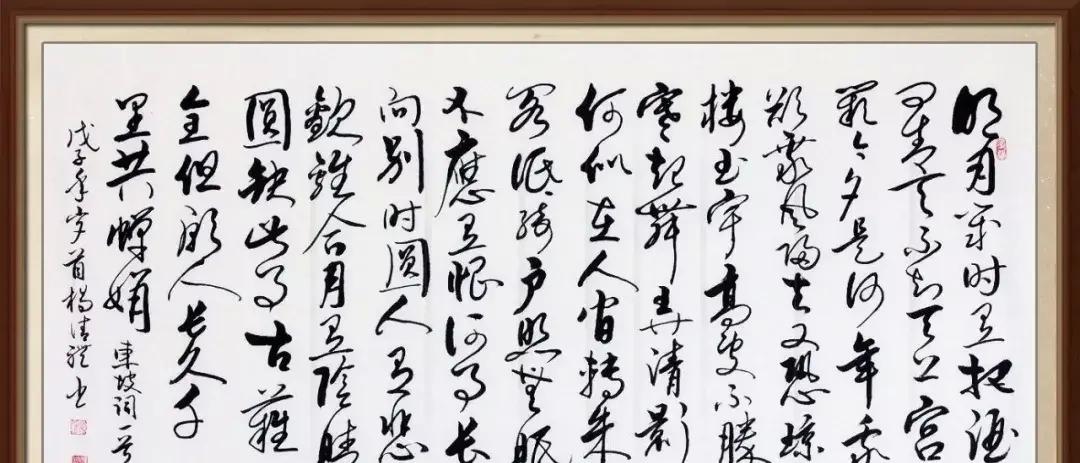 明月幾时有把酒
问青天不知天上宫
阙今夕是何年我
欲乘风归去又恐琼
楼玉宇高處不勝
寒起舞弄清影
何似在人间轉朱
阁低绮户照無眠
不應有恨何事长
向别时圓人有悲
歡離合月有陰晴
圓缺此事古難
全但願人长久千
里共嬋娟
東坡词一首
戊子年岁首楊清禮书